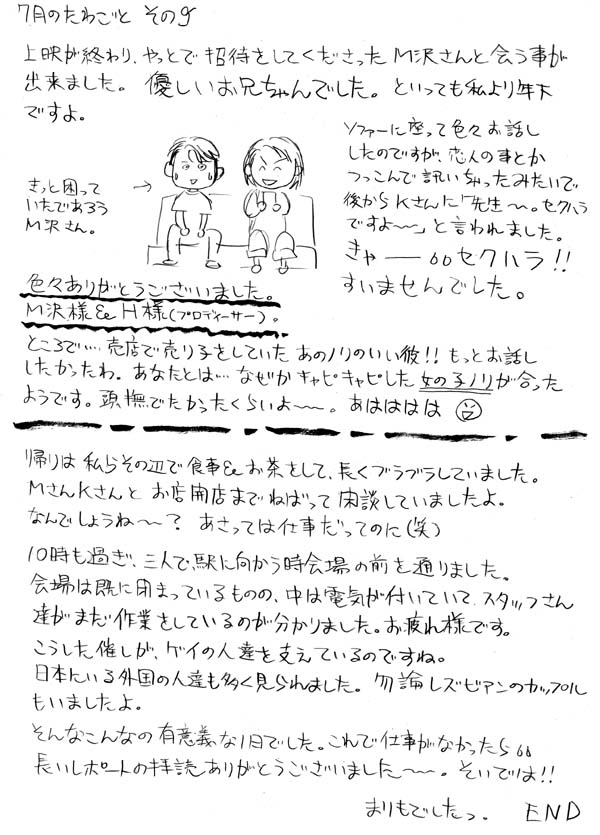 7月のたわごと その9
上映が終わり、やっとで招待をしてくださったM沢さんと会う事が
出来ました。優しいお兄ちゃんでした。といっても私より年下
ですよ。
ソファーに座って色々お話し
したのですが、恋人の事とか
つっこんで訊いちゃったみたいで
後からKさんに「先生〜。セクハラ
ですよ〜」と言われました。
きゃ――。。セクハラ!!
すいませんでした。
きっと困って
いたであろう
M沢さん。
色々ありがとうございました。
M沢様& H様(プロデューサー)。
ところで…売店で売り子をしていたあのノリのいい彼!!もっとお話し
したかったわ。あなたとは…なぜかキャピキャピした女の子ノリが合った
ようです。頭撫でたかったくらいよ〜〜。あはははは
帰りは私らその辺で食事&お茶をして、長くブラブラしていました。
MさんKさんとお店閉店までねばって閑談していましたよ。
なんでしょうね〜〜?あさっては仕事だってのに(笑)
10時も過ぎ、三人で駅に向かう時会場の前を通りました。
会場は既に閉まっているものの、中は電気が付いていて、スタッフさん
達がまだ作業をしているのが分かりました。お疲れ様です。
こうした催しが、ゲイの人達を支えているのですね。
日本にいる外国の人達も多く見られました。勿論レズビアンのカップル
もいましたよ。
そんなこんなの有意義な1日でした。これで仕事がなかったら。。
長いレポートの拝読ありがとうございました〜〜。そいでは!!
まりもでしたっ。 END